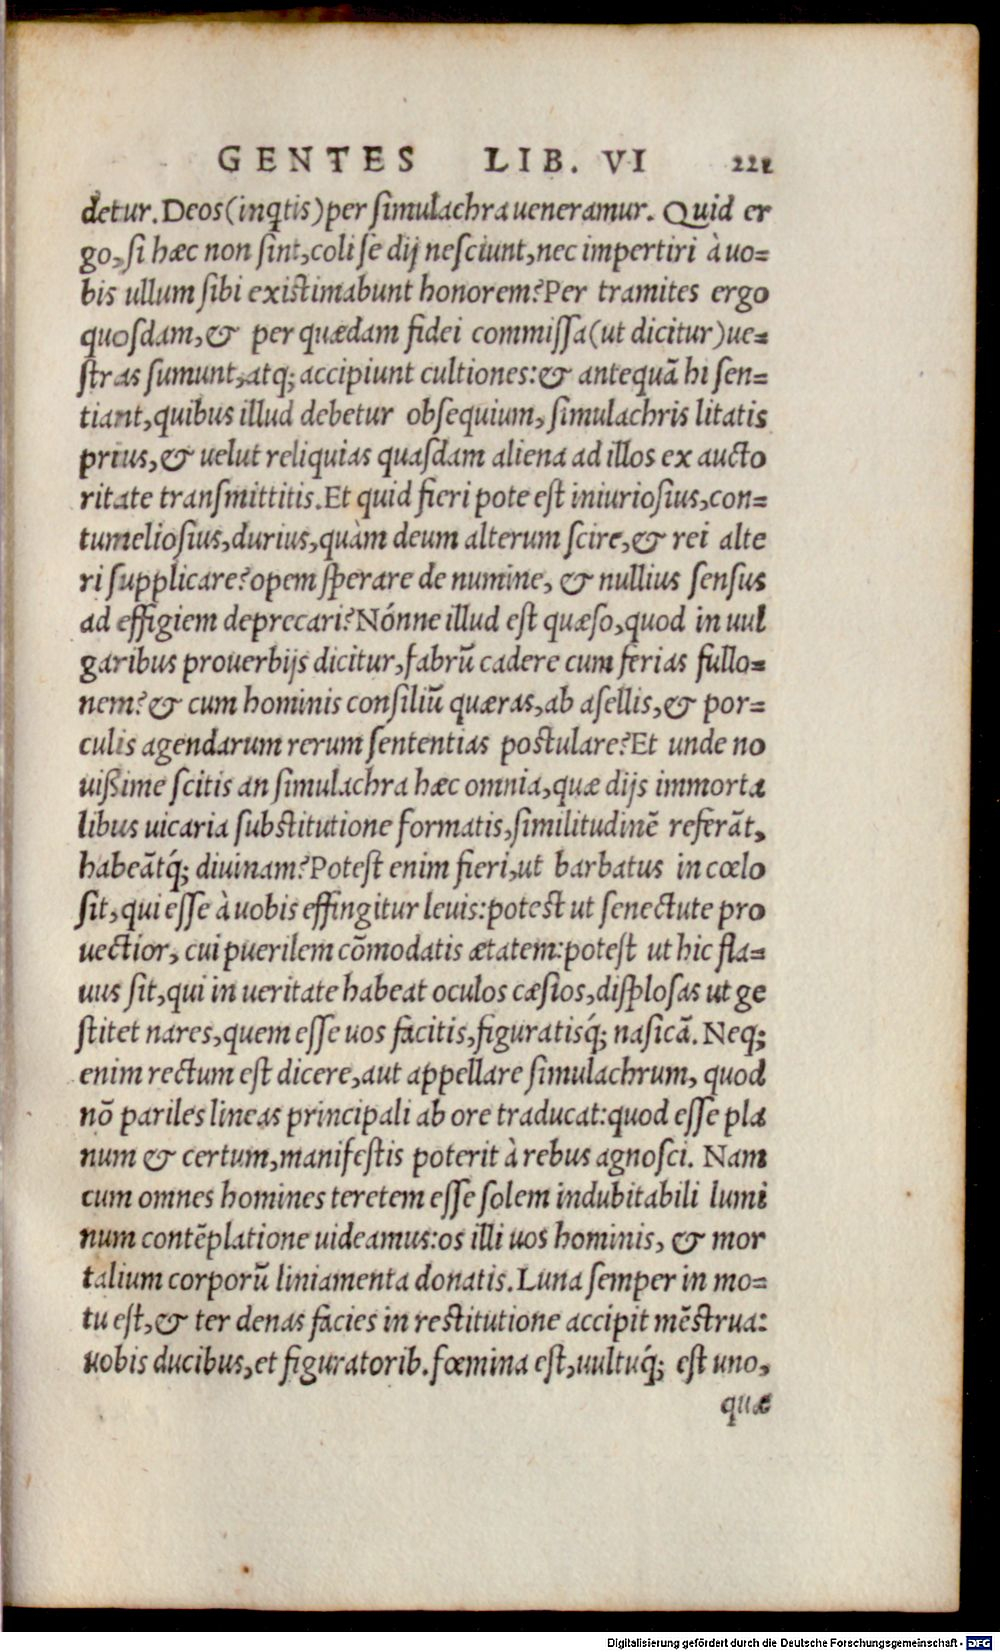 GENTES LIB. VI 221
detur. Deos (inqtis) per simulachra veneramur. Quid er
go, si hæc non sint, coli se dij nesciunt, nec impertiri à uo=
bis ullum sibi existimabunt honorem? Per tramites ergo
quosdam, & per quædam fidei commissa (ut dicitur) ue=
stras sumunt, atq; accipiunt cultiones: & antequã hi sen=
tiant, quibus illud debetur obsequium, simulachris litatis
prius, & uelut reliquias quasdam aliena ad illos ex aucto
ritate transmittitis. Et quid fieri pote est iniuriosius, con=
tumeliosius, durius, quàm deum alterum scire, & rei alte
ri supplicare? opem sperare de numine, & nullius sensus
ad effigiem deprecari? Nónne illud est quæso, quod in uul
garibus prouerbijs dicitur, fabrũ cadere cum ferias fullo=
nem? & cum hominis consiliũ quæras, ab asellis, & por=
culis agendarum rerum sententias postulare? Et unde no
uißime scitis an simulachra hæc omnia, quæ dijs immorta
libus uicaria substitutione formatis, similitudinẽ referãt,
habeãtq́; diuinam? Potest enim fieri, ut barbatus in cœlo
sit, qui esse à uobis effingitur leuis: potest ut senectute pro
uectior, cui puerilem cõmodatis ætatem: potest ut hic fla=
uus sit, qui in ueritate habeat oculos cæsios, displosas ut ge
stitet nares, quem esse uos facitis, figuratisq́; nasicã. Neq;
enim rectum est dicere, aut appellare simulachrum, quod
nõ pariles lineas principali ab ore traducat: quod esse pla
num & certum, manifestis poterit à rebus agnosci. Nam
cum omnes homines teretem esse solem indubitabili lumi
num contẽplatione uideamus: os illi uos hominis, & mor
talium corporũ liniamenta donatis. Luna semper in mo=
tu est, & ter denas facies in restitutione accipit mẽstrua:
uobis ducibus, et figuratorib. fœmina est, uultuq́; est uno,
quæ
Digitalisierung gefördert durch die Deutsche Forschungsgemeinschaft - DFG